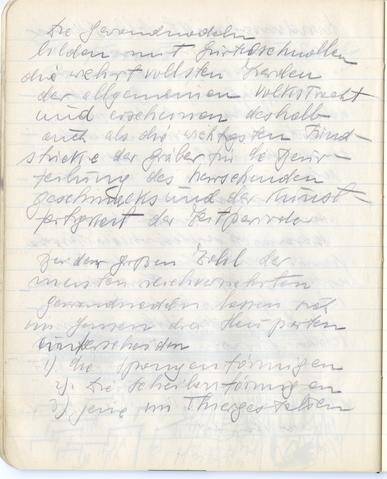 Die Gewandnadeln
bilden mit Gürtelschnallen
die wehrtvollsten Zierden
der allgemeinen Volkstracht
und erscheinen deshalb
auch als die wichtigsten Fund-
stücke der Gräber für die Beur-
teilung des herrschenden
Geschmacks und der Kunst-
fertigkeit der Zeitperiode
Bei der großen Zahl der
meisten reichverzierten
Gewandnadeln lassen sich
im Ganzen drei Hauptarten
unterscheiden
1) Die spangenförmigen
2) Die scheibenförmigen
3) jene in Thiergestalten